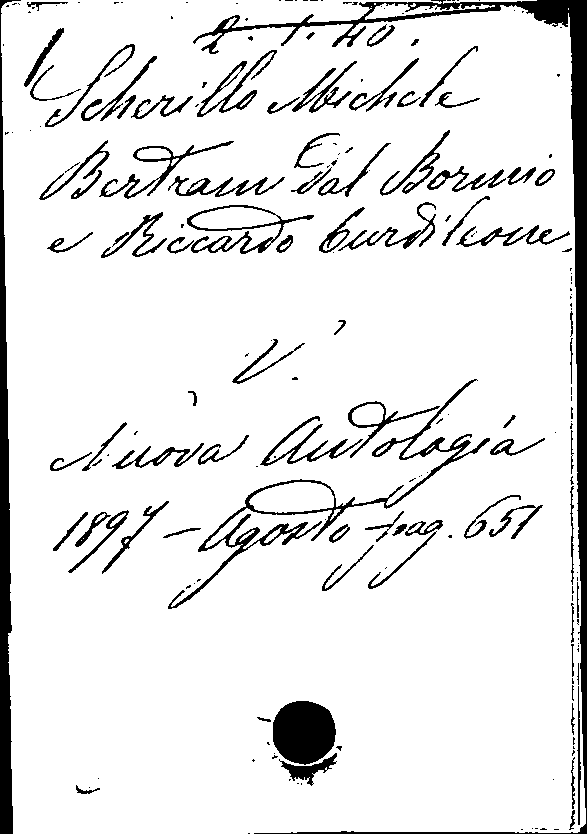 2. 1. 40.
Scherillo Michele
Bertram dal Bormio
e Riccardo Curdileone.
V.
Nuova Antologia
1897 - Agosto - pag. 651